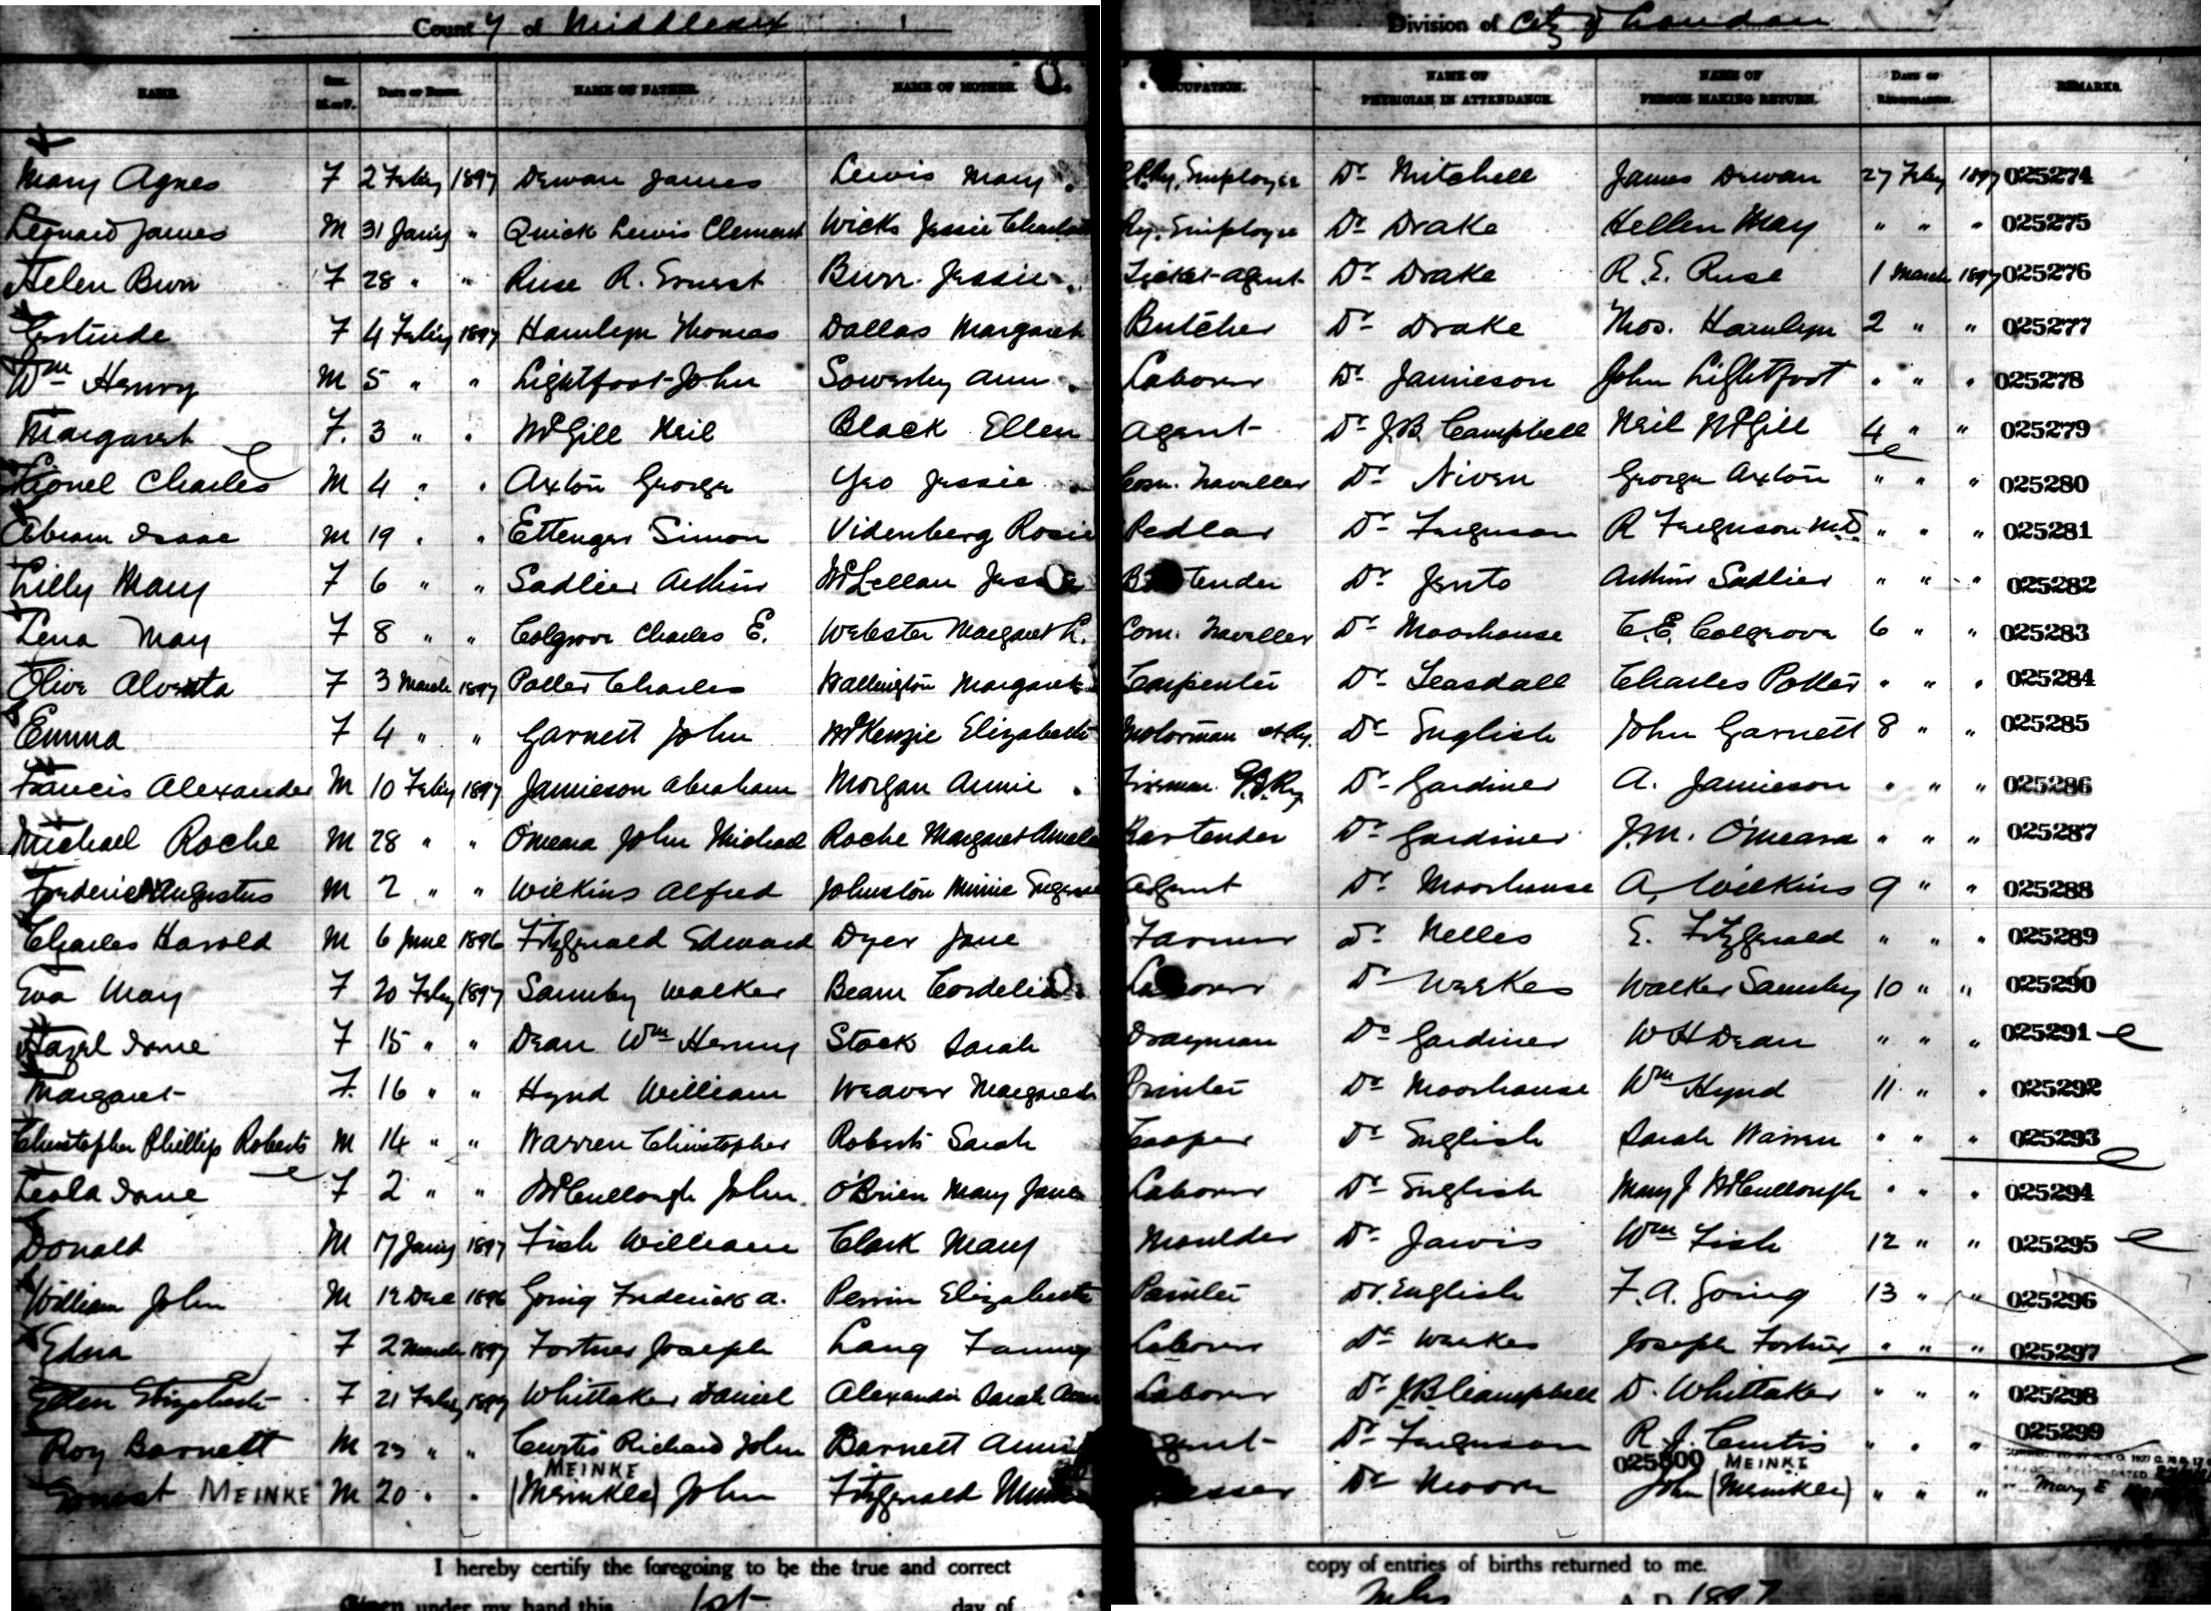 County of Middlesex Division of City of London
NAME. Sex. M. or F. DATE OF BIRTH. NAME OF FATHER. NAME OF MOTHER. OCCUPATION. NAME OF PHYSICIAN IN ATTENDANCE. NAME OF PERSON MAKING RETURN. DATE OF REGISTRATION. REMARKS.
Mary Agnes F 2 Feby 1897 Dewan James Lewis Mary Ry. Employee Dr Mitchell James Dewan 27 Feby 1897 025274
Leonard James M 31 Jany " Quick Lewis Clement Wicks Jessie Charlotte Ry. Employee Dr Drake Hellen May " " " 025275
Helen Burr F 28 " " Ruse R. Ernest Burr Jessie Ticket-agent Dr Drake R. E. Ruse 1 March 1897 025276
Gertrude F 4 Feby 1897 Hamlyn Thomas Dallas Margaret Butcher Dr Drake Thos. Hamlyn 2 " " 025277
Wm Henry M 5 " " Lightfoot John Sowerby Ann Laborer Dr Jamieson John Lightfoot " " " 025278
Margaret F. 3 " " McGill Neil Black Ellen Agent Dr J.B. Campbell Neil McGill 4 " " 025279
Lionel Charles M 4 " " Axton George Yeo Jessie Com. Traveller Dr Niven George Axton " " " 025280
Abram Isaac M 19 " " Ettenger Simon Videnberg Rosie Pedlar Dr Ferguson R Ferguson M.D. " " " 025281
Lilly Mary F 6 " " Sadlier Arthur McLellan Jessie Bartender Dr Jento Arthur Sadlier " " " 025282
Lena May F 8 " " Colgrove Charles E. Webster Margaret L. Com. Traveller Dr Moorhouse C.E. Colgrove 6 " " 025283
Olive Alverta F 3 March 1897 Potter Charles Wallington Margaret Carpenter Dr Teasdall Charles Potter " " " 025284
Emma F 4 " " Garnett John McKenzie Elizabeth Motorman st Ry. Dr English John Garnett 8 " " 025285
Francis Alexander M 10 Feby 1897 Jamieson Abraham Morgan Annie Fireman Ry. Dr Gardiner A. Jamieson " " " 025286
Michael Roche M 28 " " O'Meara John Michael Roche Margaret Bartender Dr Gardiner J.M. O'Meara " " " 025287
Frederick Augustus M 2 " " Wilkins Alfred Johnston Minnie Eugenie Agent Dr Moorhouse A. Wilkins 9 " " 025288
Charles Harold M 6 June 1896 Fitzgerald Edward Dyer Jane Farmer Dr Nelles E. Fitzgerald " " " 025289
Eva May F 20 Feby 1897 Samby Walker Beam Cordelia Laborer Dr Weekes Walker Samby 10 " " 025290
Hazel Irene F 15 " " Dean Wm Henry Stock Sarah Drayman Dr Gardiner W H Dean " " " 025291
Margaret F. 16 " " Hynd William Weaver Margaret Printer Dr Moorhouse Wm Hynd 11 " " 025292
Christopher Phillip Roberts M 14 " " Warren Christopher Roberts Sarah Cooper Dr English Sarah Warren " " " 025293
Leola Irene F 2 " " McCullough John O'Brien Mary Jane Laborer Dr English Mary J McCullough " " " 025294
Donald M 17 Jany 1897 Fish William Clark Mary Moulder Dr Jarvis Wm Fish 12 " " 025295
William John M 12 Dec 1896 Going Frederick A. Perrin Elizabeth Painter Dr. English F. A. Going 13 " " 025296
Edna F 2 March 1897 Fortner Joseph Lang Fanny Laborer Dr Weekes Joseph Fortner " " " 025297
Ellen Elizabeth F 21 Feby 1897 Whittaker Daniel Alexander Sarah Ann Laborer Dr J.B. Campbell D. Whittaker " " " 025298
Roy Barnett M 23 " " Curtis Richard John Barnett Annie Agent Dr Ferguson R. J. Curtis " " " 025299
Ernest MEINKE M 20 " " MEINKE (Meinkle) John Fitzgerald Dr Moore 025300 MEINKE John (Meinkle) " " " Mary E
I hereby certify the foregoing to be the true and correct copy of entries of births returned to me.
Given under my hand this 1st day of July A. D. 1897